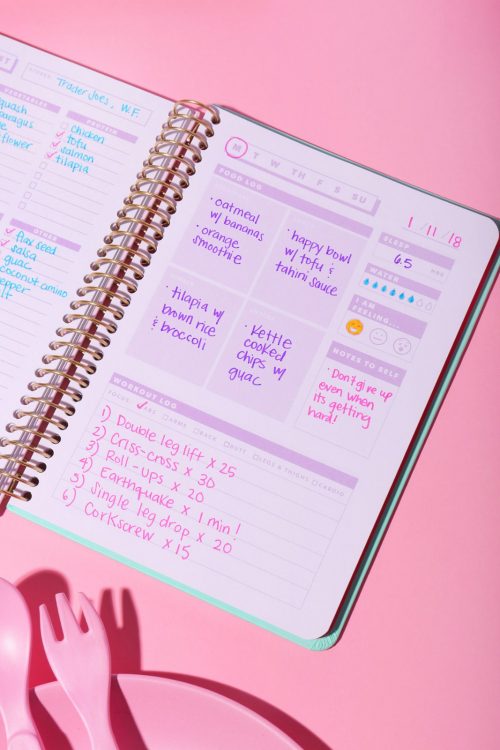 Trader Joes, W.F.
VEGETABLES
quash
aragus
flower
PROTEIN
chicken
tofu
salmon
tilapia
OTHER
flax seed
salsa
guac
coconut amino
epper
lt
M T W TH F S SU
1/11/18
FOOD LOG
• oatmeal
w/ bananas
• orange
smoothie
• happy bowl
w/ tofu &
tahini sauce
• tilapia w/
brown rice
& broccoli
• Kettle
cooked
chips w/
guac
SLEEP
6.5 HRS
WATER
I AM
FEELING...
NOTES TO SELF
• Don't give up
even when
its getting
hard!
WORKOUT LOG
FOCUS: ABS ARMS BACK BUTT LEGS & THIGHS CARDIO
1) Double leg lift x 25
2) Criss-cross x 30
3) Roll-ups x 20
4) Earthquake x 1 min!
5) Single leg drop x 20
6) Corkscrew x 15